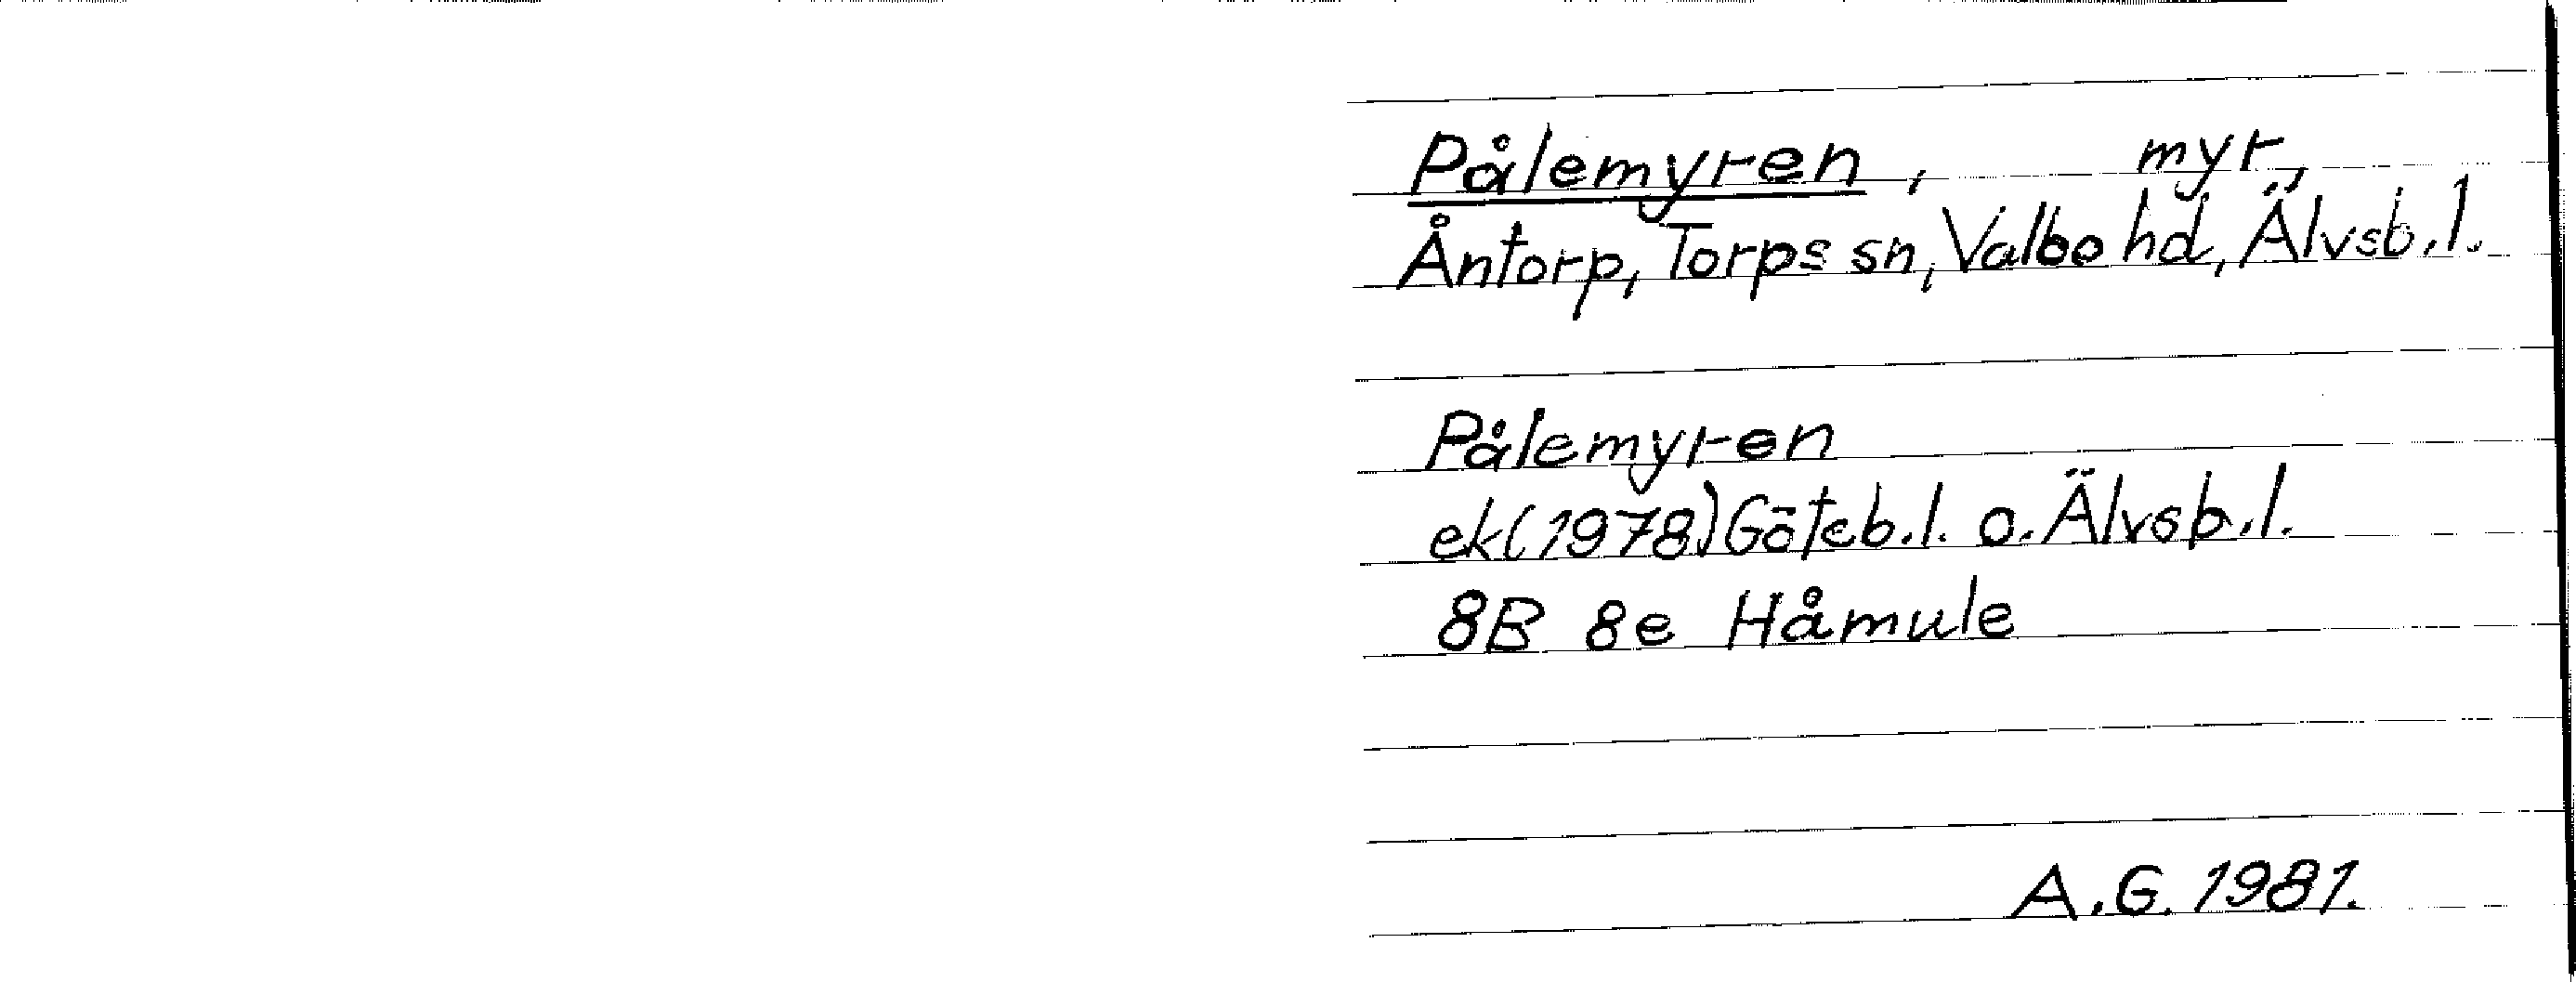 Pålemyren, myr,
Åntorp, Torps sn, Valbo hd, Älvsb.l.
Pålemyren
ek(1978) Göteb.l. o. Älvsb.l.
8B 8e Håmule
A.G. 1981.